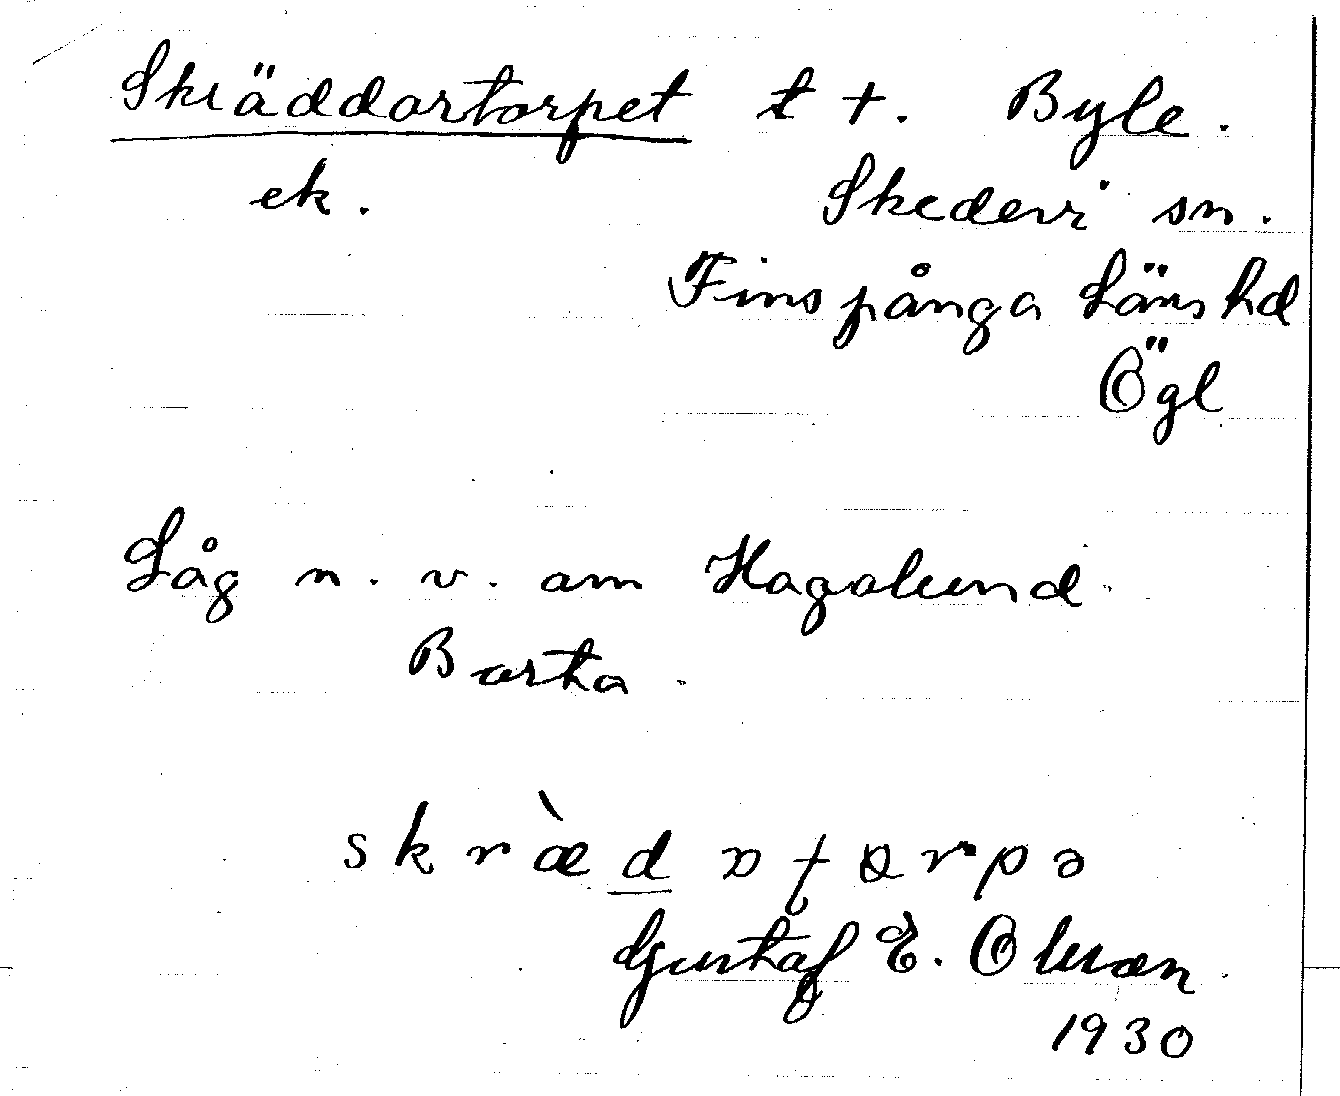 Skräddartorpet t +. Byle.
ek. Skedevi sn.
Finspånga Läns hd
Ögl
Låg n. v. om Hagalund
Borka
skræ̀dat̨ɔrpə
Gustaf E. Olsson
1930